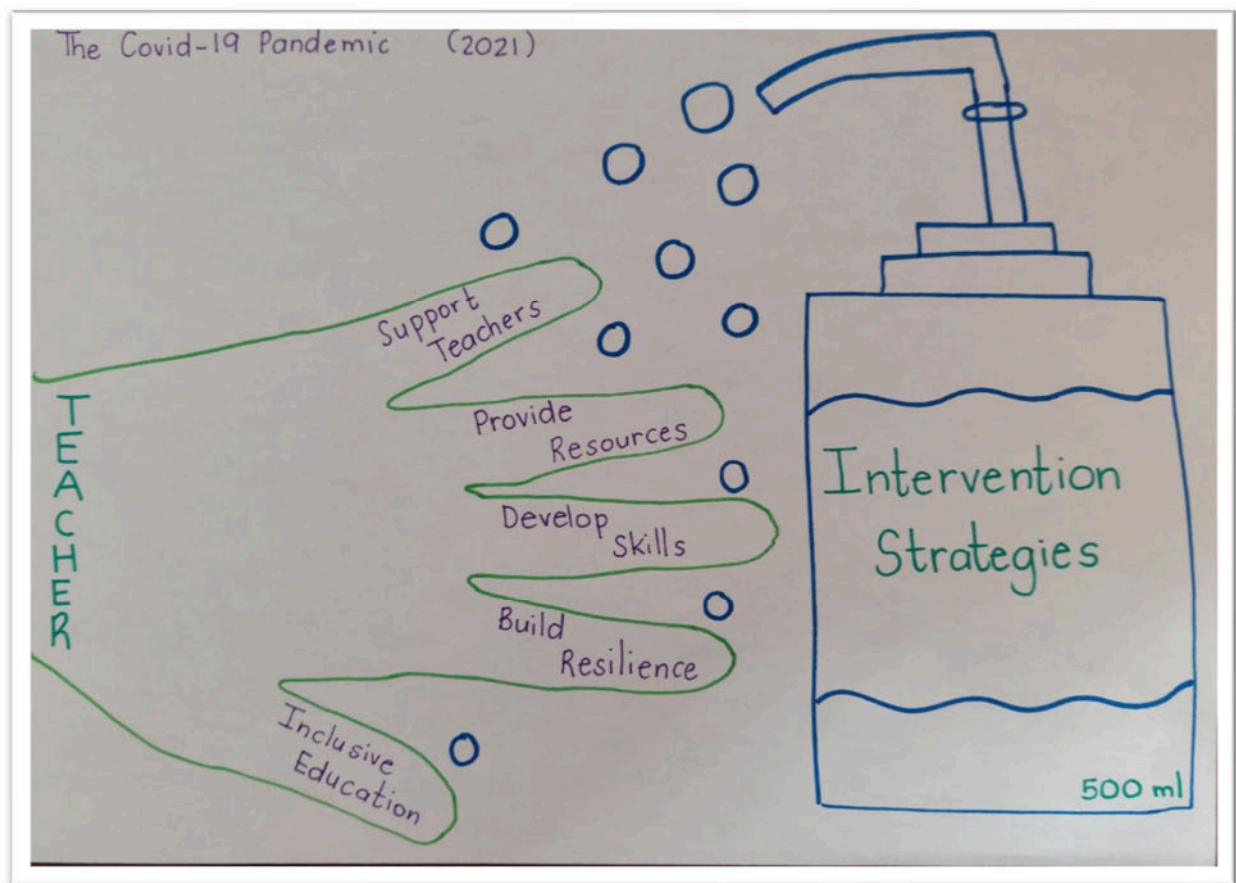 The Covid-19 Pandemic (2021)
TEACHER
Support
Teachers
Provide
Resources
Develop
Skills
Build
Resilience
Inclusive
Education
Intervention
Strategies
500 ml